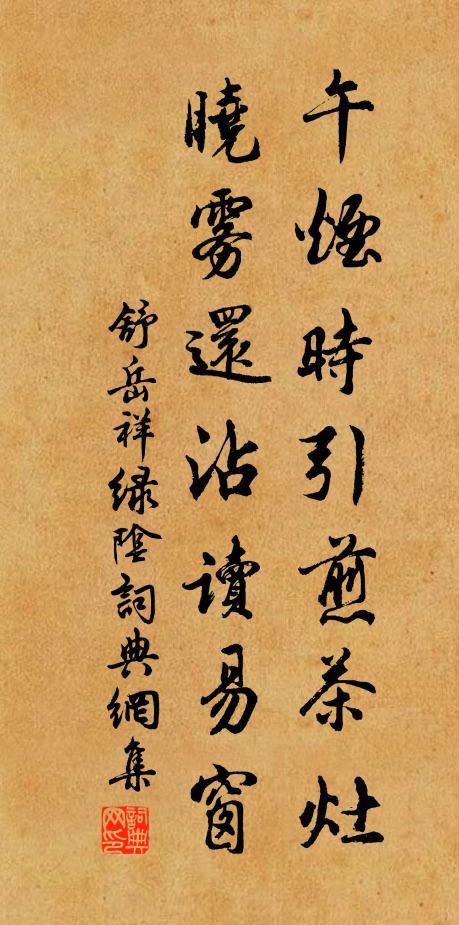 午煙時引煎茶灶
曉雾還沾讀易窗
舒岳祥綠陰詞典網集
詞典网印